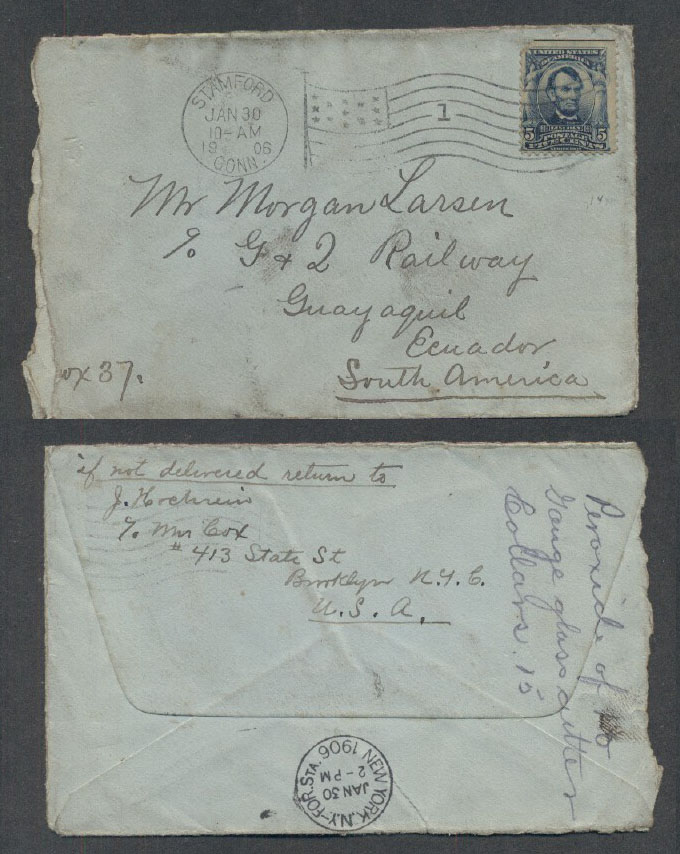 STAMFORD
JAN 30
10-AM
19 06
CONN.
1
UNITED STATES
5 5
POSTAGE
FIVE CENTS
Mr Morgan Larsen
c/o G & Q Railway
Guayaquil
Ecuador
South America
ox 37.
if not delivered return to
J. Hochrein
c/o Mrs Cox
# 413 State St
Brooklyn N.Y.C.
U.S.A.
Peroxide of
Gauge glass cutter
Collars. 15
NEW YORK, N.Y.-FOR. STA. 1906
JAN 30
2-PM